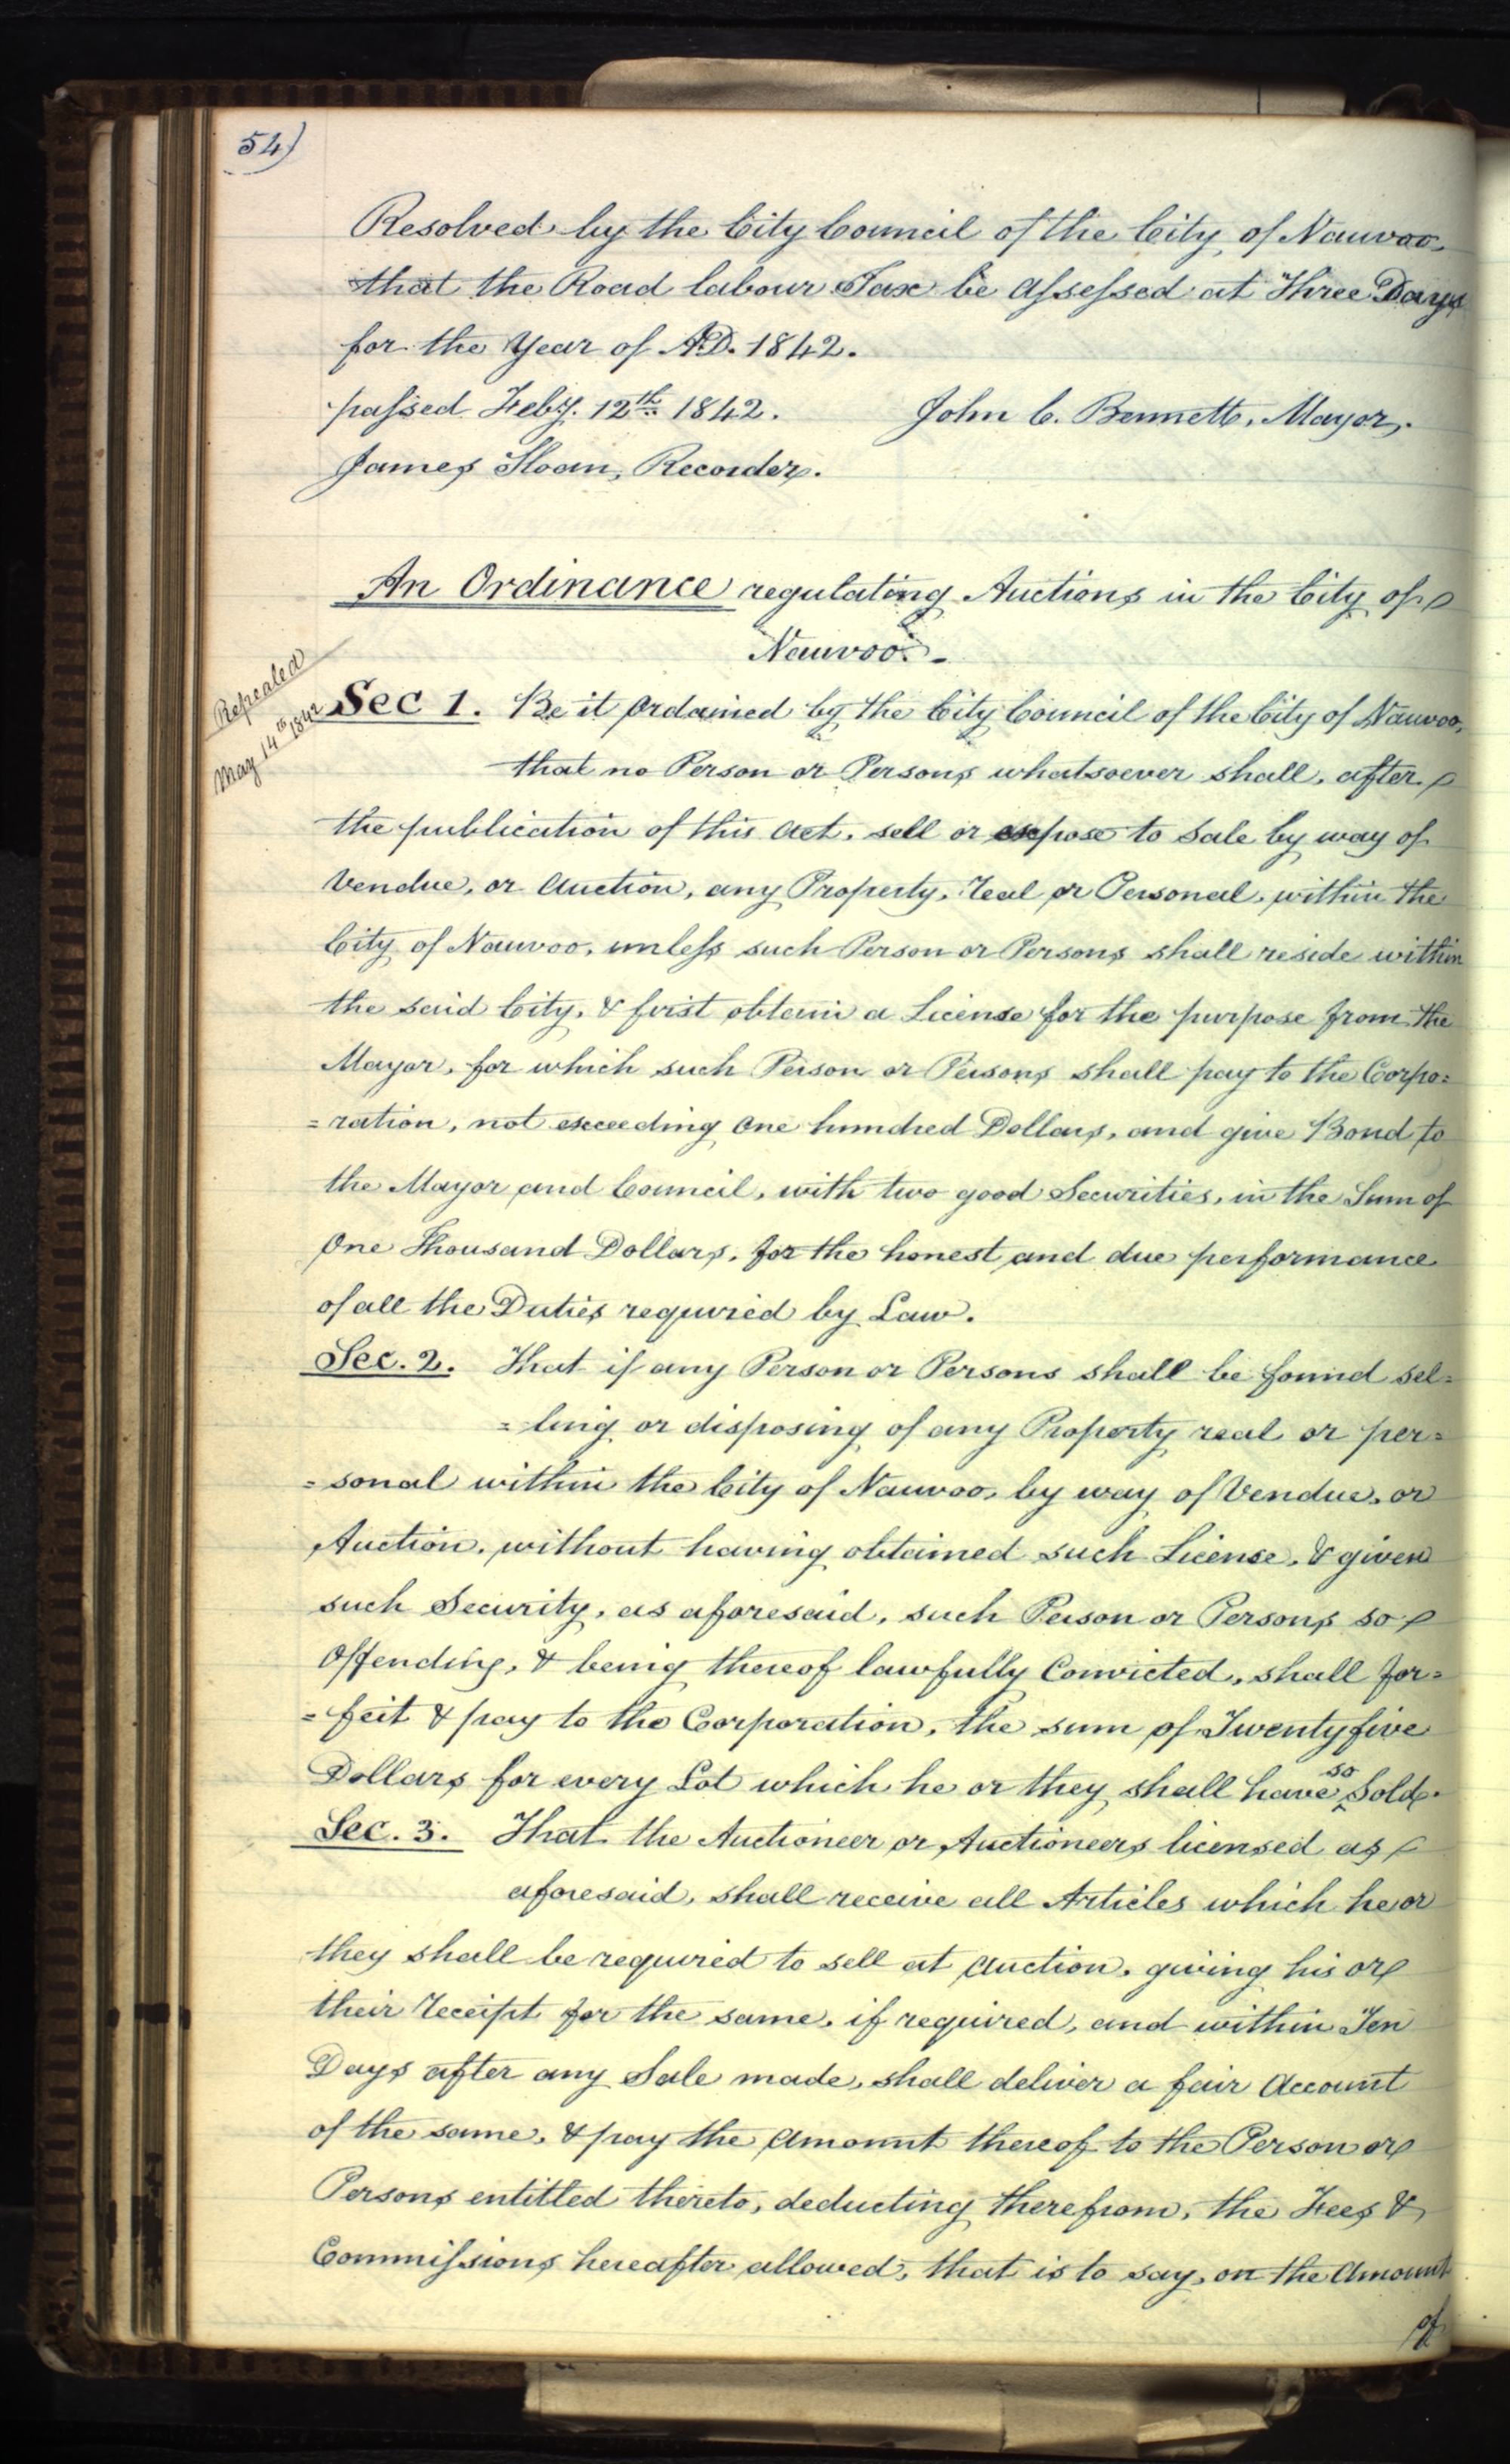 54)
Resolved by the City Council of the City of Nauvoo,
that the Road labour Tax be assessed at Three Days
for the Year of A.D. 1842.
passed Feby. 12th. 1842. John C. Bennett, Mayor,.
James Sloan, Recorder.
An Ordinance regulating Auctions in the City of
Nauvoo.-
Repealed
May 14th 1842
Sec 1. Be it Ordained by the City Council of the City of Nauvoo,
that no Person or Persons whatsoever shall, after
the publication of this Act, sell or expose to Sale by way of
Vendue, or Auction, any Property, real or Personal, within the
City of Nauvoo, unless such Person or Persons shall reside within
the said City, & first obtain a License for the purpose from the
Mayor, for which such Person or Persons shall pay to the Corpo=
=ration, not exceeding One hundred Dollars, and give Bond to
the Mayor and Council, with two good Securities, in the Sum of
One Thousand Dollars, for the honest and due performance
of all the Duties required by Law.
Sec. 2. That if any Person or Persons shall be found sel=
=ling or disposing of any Property real or per=
=sonal within the City of Nauvoo, by way of Vendue, or
Auction, without having obtained such License, & given
such Security, as aforesaid, such Person or Persons so
Offending, & being thereof lawfully Convicted, shall for=
=feit & pay to the Corporation, the sum of Twenty five
Dollars for every Lot which he or they shall have so Sold.
Sec. 3. That the Auctioneer or Auctioneers licensed as
aforesaid, shall receive all Articles which he or
they shall be required to sell at Auction, giving his or
their receipt for the same, if required, and within Ten
Days after any Sale made, shall deliver a fair Account
of the same, & pay the Amount thereof to the Person or
Persons entitled thereto, deducting therefrom, the Fees &
Commissions hereafter allowed, that is to say, on the Amount
of